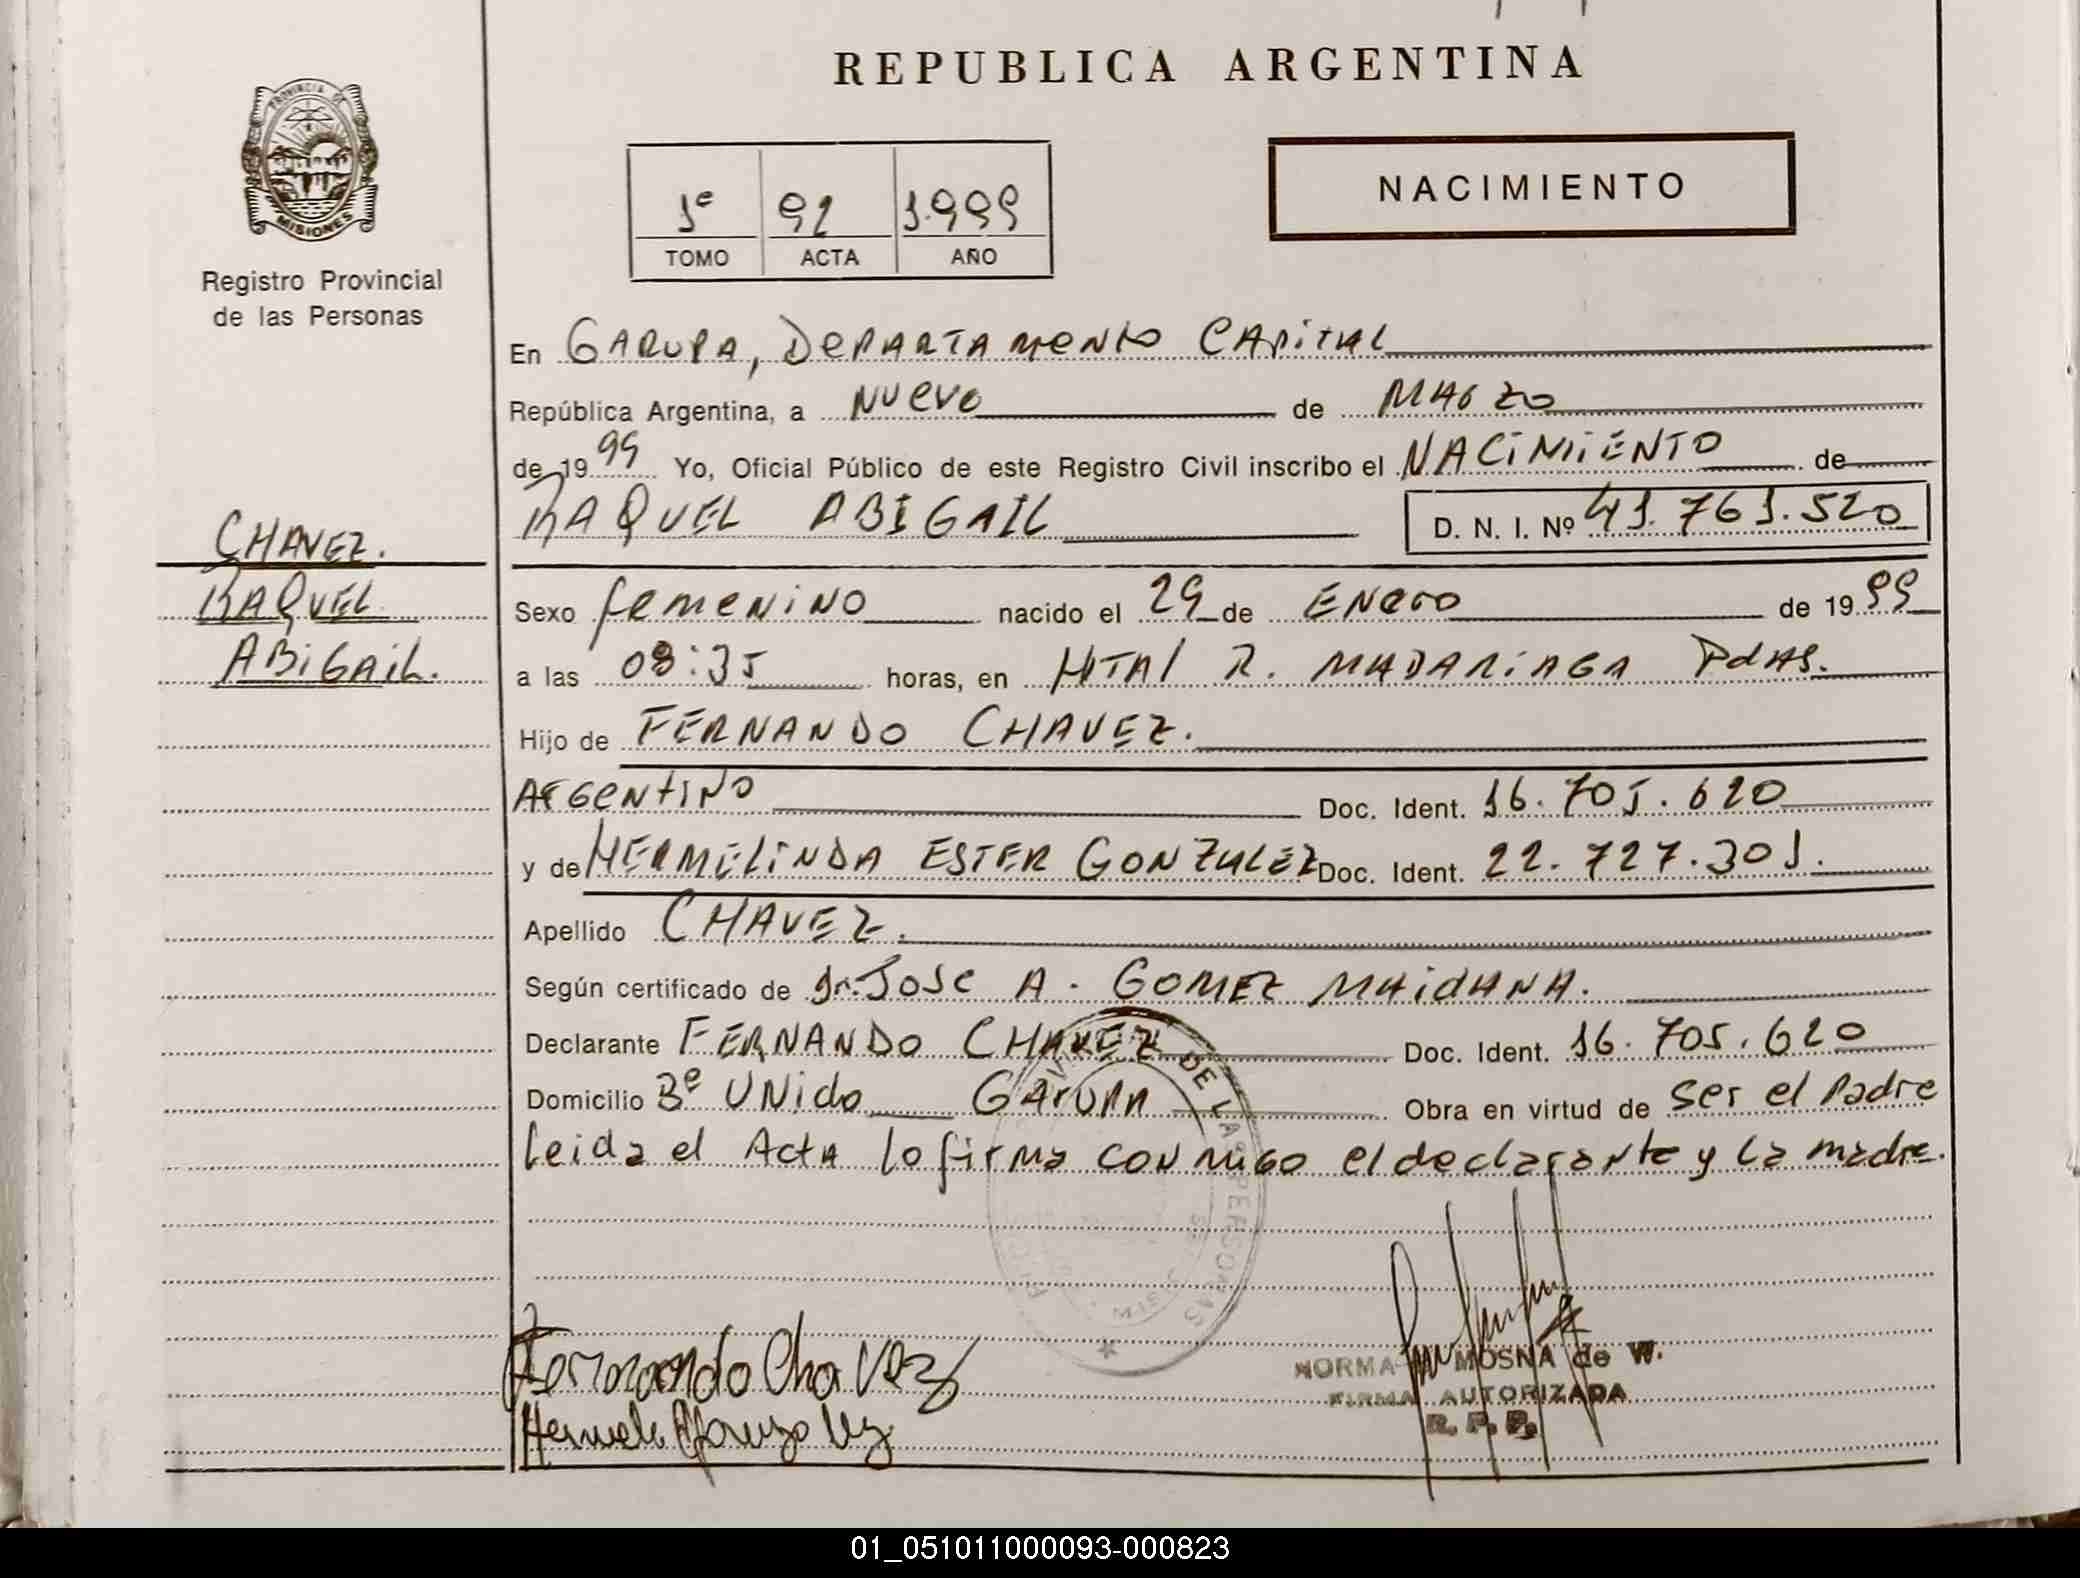 REPUBLICA ARGENTINA
PROVINCIA DE
MISIONES
Registro Provincial
de las Personas
1º 92 1.999
TOMO ACTA AÑO
NACIMIENTO
En GARUPA, DEPARTAMENTO CAPITAL
República Argentina, a NUEVE de MARZO
de 1999 Yo, Oficial Público de este Registro Civil inscribo el NACIMIENTO de
RAQUEL ABIGAIL D. N. I. Nº 41.761.520
CHAVEZ.
RAQUEL
ABIGAIL.
Sexo femenino nacido el 29 de ENERO de 1999
a las 08:35 horas, en HTAL R. MADARIAGA Pdas.
Hijo de FERNANDO CHAVEZ.
ARGENTINO Doc. Ident. 16.705.620
y de HERMELINDA ESTER GONZALEZ Doc. Ident. 22.727.301.
Apellido CHAVEZ.
Según certificado de Dr. JOSE A. GOMEZ MAIDANA.
Declarante FERNANDO CHAVEZ Doc. Ident. 16.705.620
Domicilio Bº UNido GARUPA Obra en virtud de ser el padre
leida el Acta lo firma conmigo el declarante y la madre.
DE LAS PERSONAS
Fernando Chavez
NORMA MOSNA de W.
FIRMA AUTORIZADA
R. P. P.
01_051011000093-000823